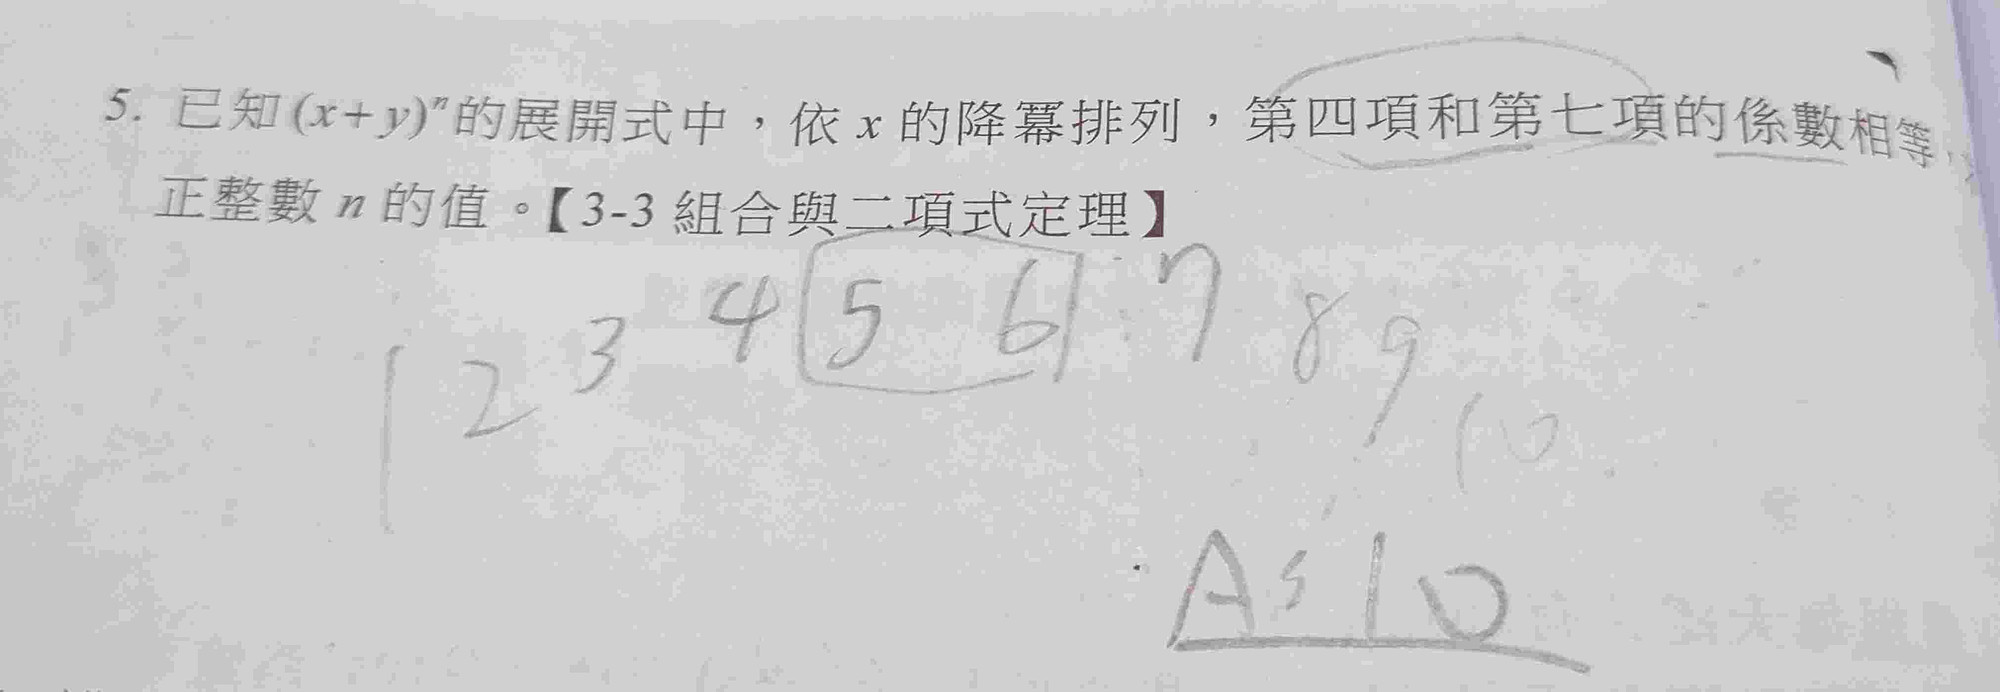 5. 已知(x+y)ⁿ的展開式中，依 x 的降冪排列，第四項和第七項的係數相等，
正整數 n 的值。【3-3 組合與二項式定理】
1 2 3 4 5 6 7 8 9 10
A: 10